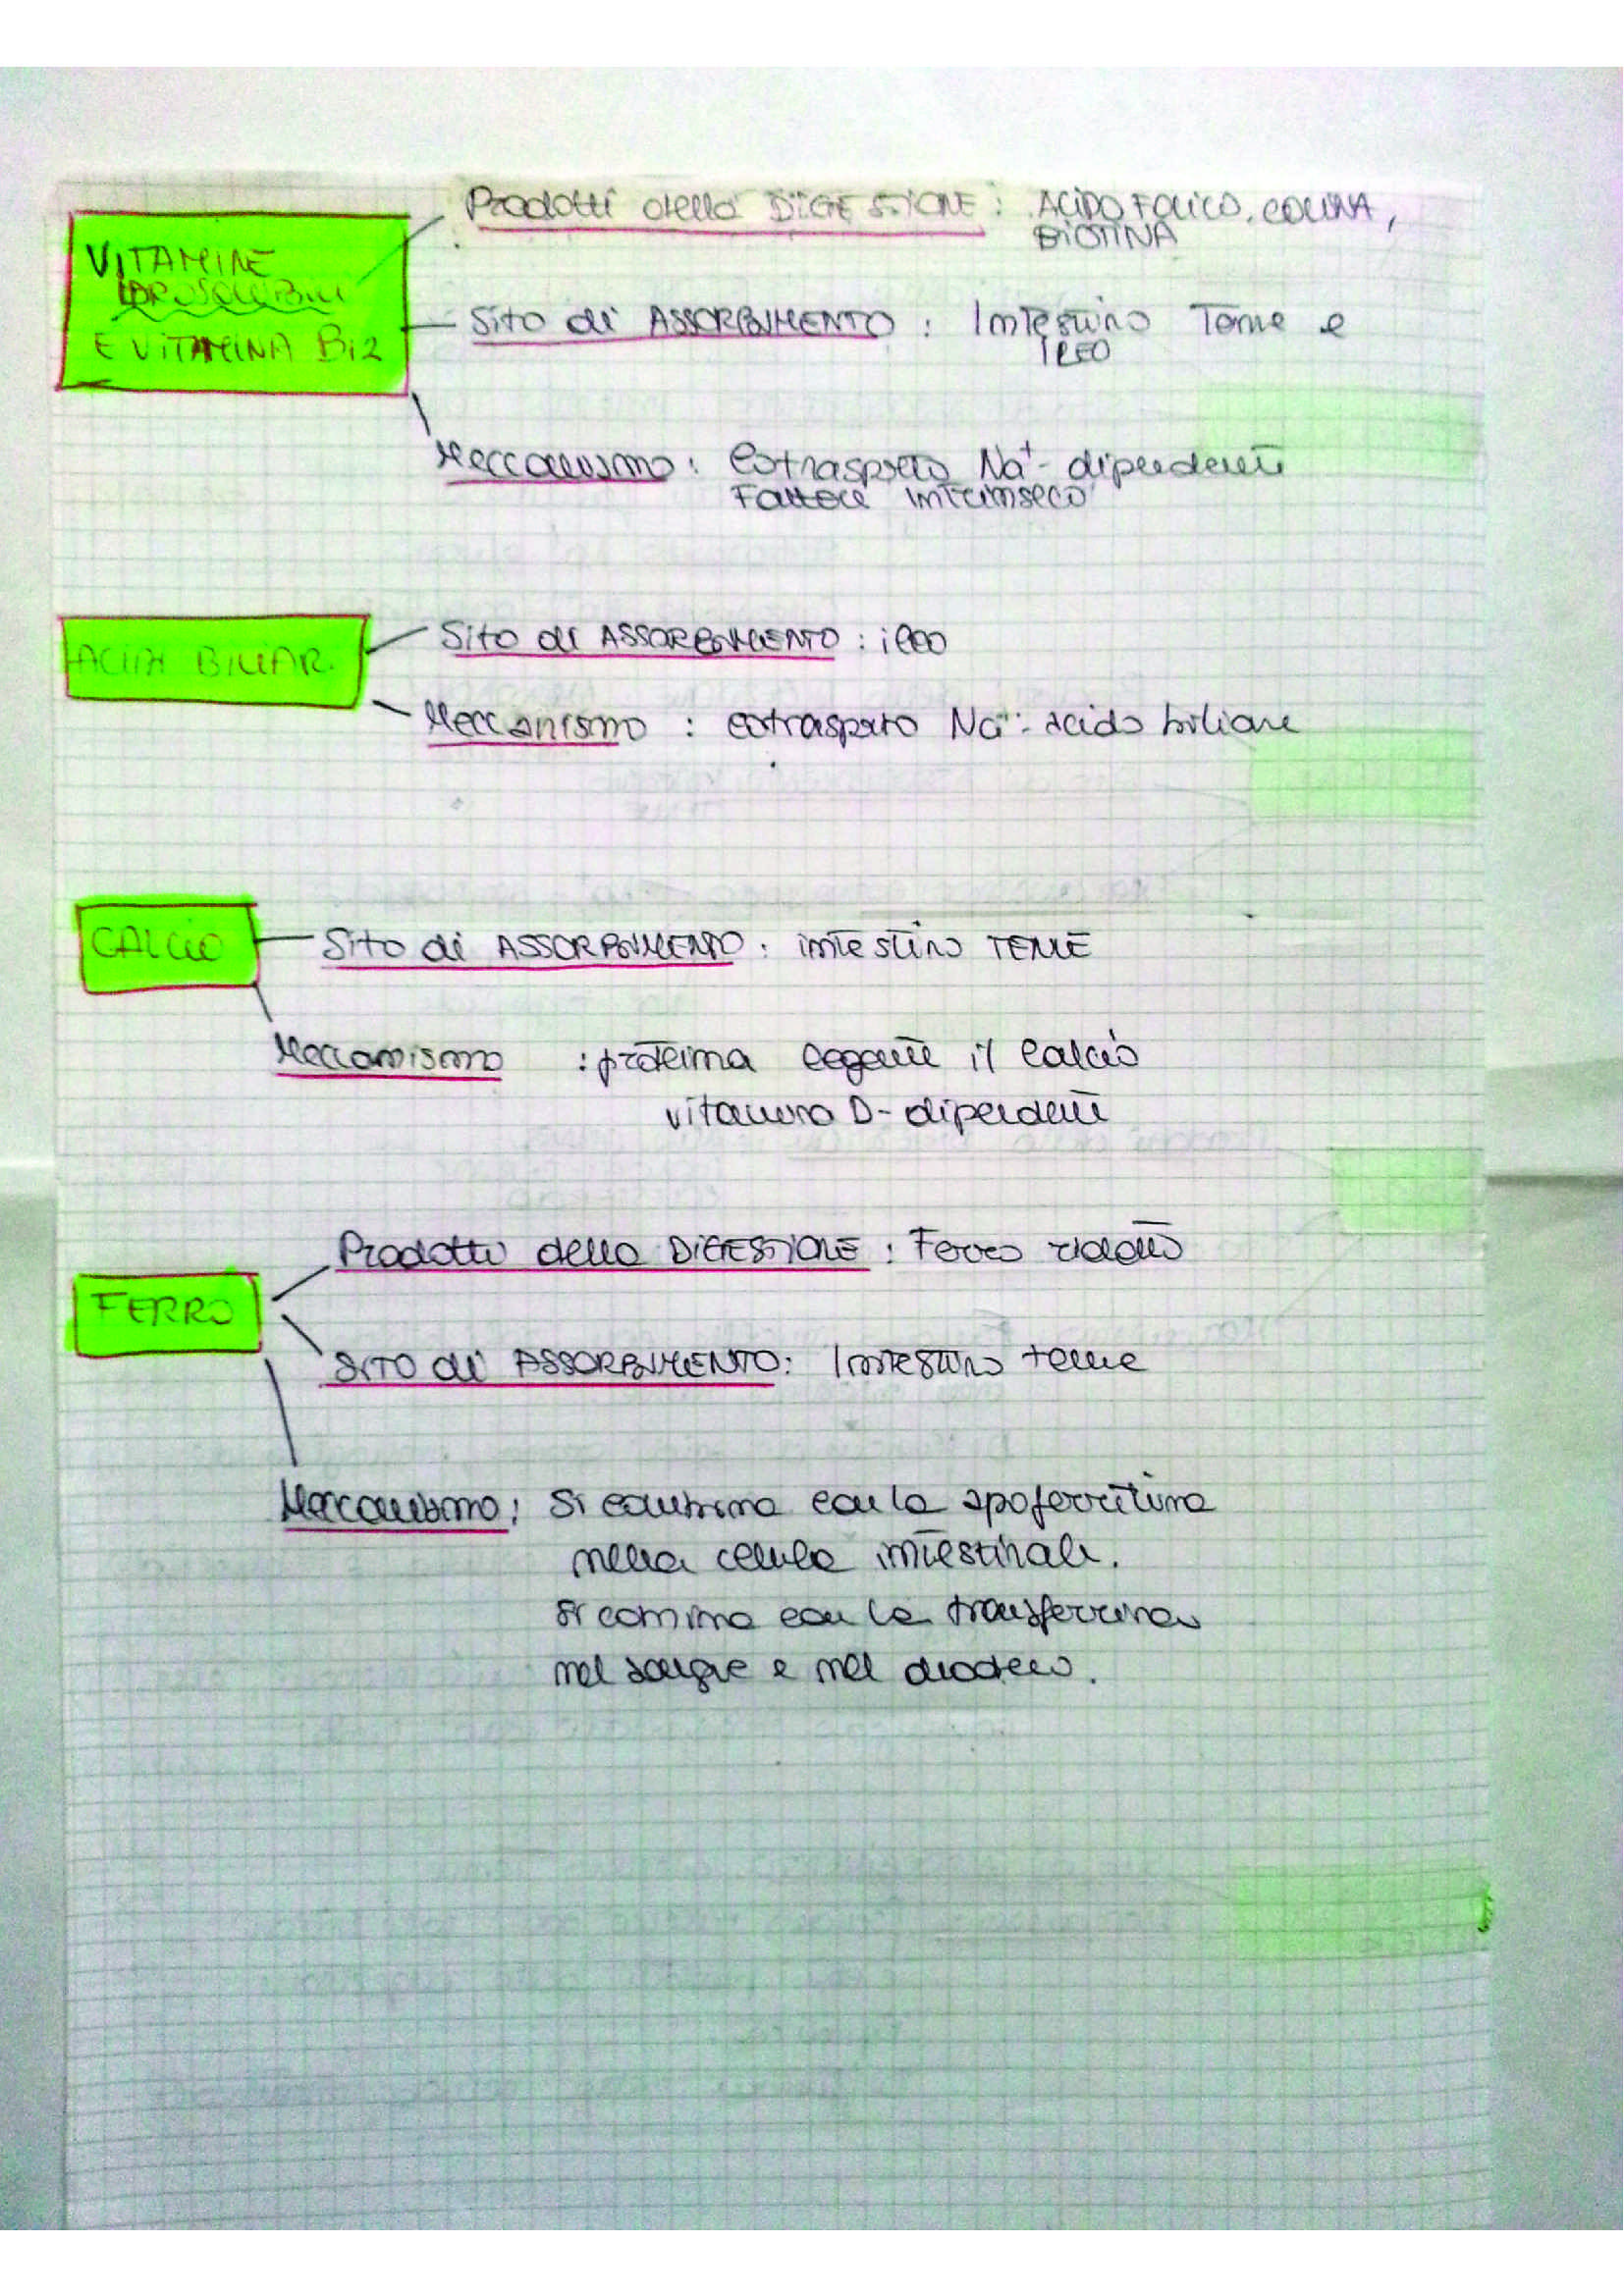 Prodotti della DIGESTIONE : ACIDO FOLICO, COLINA,
BIOTINA
VITAMINE
IDROSOLUBILI
E VITAMINA B12
Sito di ASSORBIMENTO : Intestino Tenue e
ILEO
Meccanismo : Cotrasporto Na+- dipendente
Fattore intrinseco
ACIDI BILIAR.
Sito di ASSORBIMENTO : ileo
Meccanismo : cotrasporto Na+- acido biliare
CALCIO
Sito di ASSORBIMENTO : intestino TENUE
Meccanismo : proteina legante il calcio
vitamina D- dipendente
Prodotti della DIGESTIONE : Ferro ridotto
FERRO
SITO di ASSORBIMENTO : Intestino tenue
Meccanismo : Si combina con la apoferritina
nella cellula intestinale.
Si comina con la transferrina
nel sangue e nel duodeno.